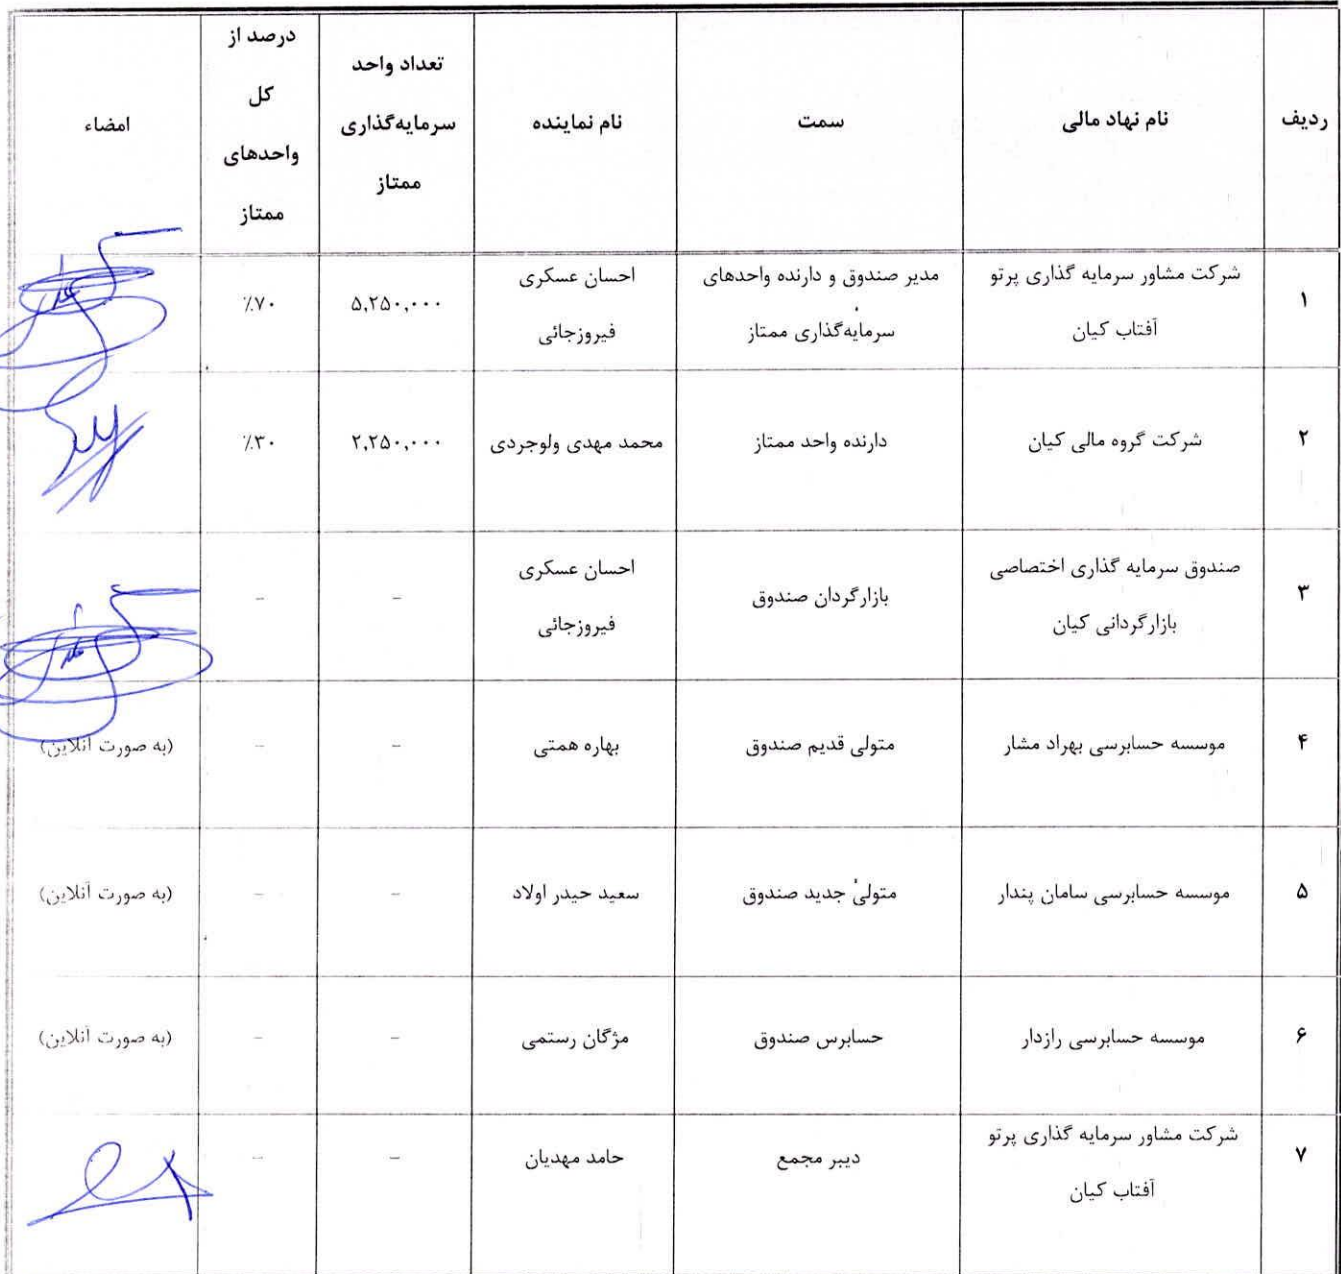 ردیف
نام نهاد مالی
سمت
نام نماینده
تعداد واحد
سرمایه‌گذاری
ممتاز
درصد از
کل
واحدهای
ممتاز
امضاء
۱
شرکت مشاور سرمایه گذاری پرتو
آفتاب کیان
مدیر صندوق و دارنده واحدهای
سرمایه‌گذاری ممتاز
احسان عسکری
فیروزجائی
۵,۲۵۰,۰۰۰
٪۷۰
۲
شرکت گروه مالی کیان
دارنده واحد ممتاز
محمد مهدی ولوجردی
۲,۲۵۰,۰۰۰
٪۳۰
۳
صندوق سرمایه گذاری اختصاصی
بازارگردانی کیان
بازارگردان صندوق
احسان عسکری
فیروزجائی
-
-
۴
موسسه حسابرسی بهراد مشار
متولی قدیم صندوق
بهاره همتی
-
-
(به صورت آنلاین)
۵
موسسه حسابرسی سامان پندار
متولی جدید صندوق
سعید حیدر اولاد
-
-
(به صورت آنلاین)
۶
موسسه حسابرسی رازدار
حسابرس صندوق
مژگان رستمی
-
-
(به صورت آنلاین)
۷
شرکت مشاور سرمایه گذاری پرتو
آفتاب کیان
دبیر مجمع
حامد مهدیان
-
-